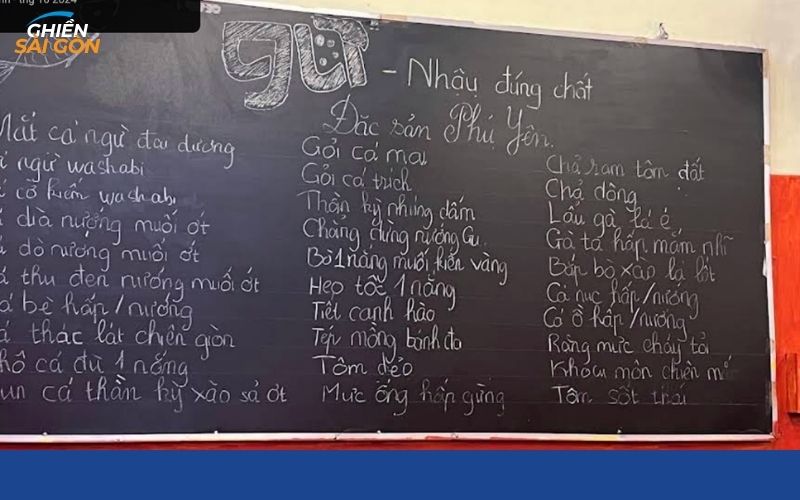 GHIỀN
SÀI GÒN
- Nhậu đúng chất
Đặc sản Phú Yên.
Mắt cá ngừ đại dương
ngừ washabi
cờ kiếm washabi
dìa nướng muối ớt
dò nướng muối ớt
thu đen nướng muối ớt
bè hấp/nướng
thác lát chiên giòn
khô cá đù 1 nắng
cá thần kỳ xào sả ớt
Gỏi cá mai
Gỏi cá trích
Thần kỳ nhúng dấm
Chẳng dừng nướng
Bò 1 nắng muối kiến vàng
Heo tộc 1 nắng
Tiết canh hào
Tép mồng bánh đa
Tôm dẻo
Mực ống hấp gừng
Chả ram tôm đất
Chả dông
Lẩu gà lá é
Gà ta hấp mắm nhĩ
Bắp bò xào lá lốt
Cá nục hấp/nướng
Cá ồ hấp/nướng
Răng mực cháy tỏi
Khoai môn chiên
Tôm sốt thái